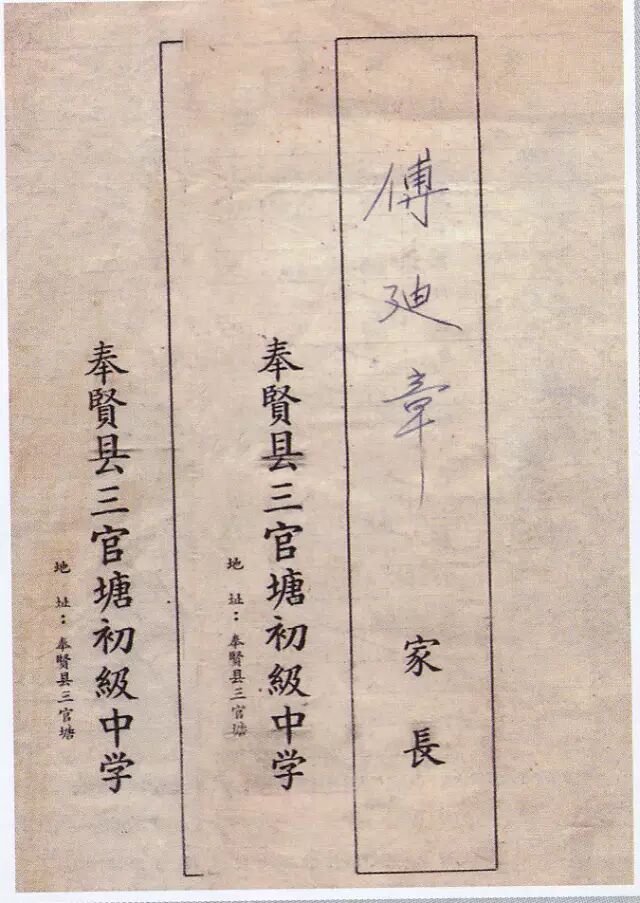 傅廸章
家長
奉賢县三官塘初級中学
地址：奉賢县三官塘
奉賢县三官塘初級中学
地址：奉賢县三官塘